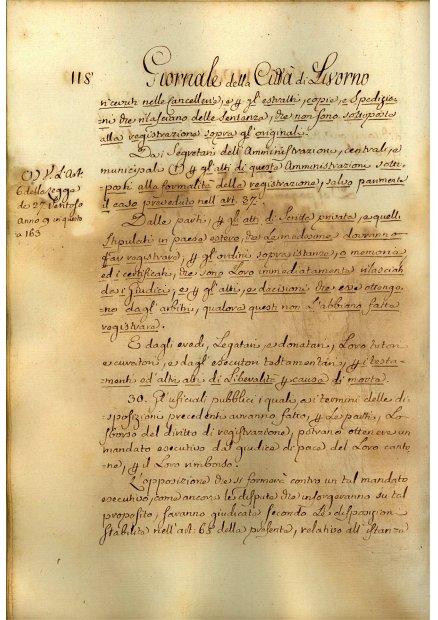 118
Giornale della Città di Livorno
ricevuti nelle Cancellerie, e per gl'estratti, copie, e Spedizio-
ni che rilasciano delle Sentenze, che non sono sottoposte
alla registrazione sopra gl'originali.
Dai Segretari dell'Amministrazione, centrali, e
municipale per gli atti di queste Amministrazioni sotto-
posti alla formalità della registrazione, salvo parimente
il caso preveduto nell'art. 37.
(*) V. L'Art.
6 della legge
de 27 Ventoso
Anno 9 in questo
a 163
Dalle parti, per gli atti di Scritta privata, e quelli
Stipulati in paese estero, che Le medesime dovranno
far registrare, per gli ordini sopra istanze, o memorie
ed i certificati, che sono Loro immediatamente rilasciati
dai Giudici, e per gli atti, e decisioni che esse ottengo-
no dagli arbitri, qualora questi non L'abbiano fatte
registrare.
E dagli eredi, Legatari e donatari, Loro tutori
e curatori, e dagli esecutori testamentari, per i testa-
menti ed altri atti di Liberalità per causa di morte.
30. Gli ufiziali pubblici i quali, ai termini delle di-
sposizioni precedenti avranno fatto, per Le parti, Lo
sborso del diritto di registrazione, potranno ottenere un
mandato esecutivo dal giudice di pace del Loro canto-
ne, per il Loro rimborso.
L'opposizione che si formerà contro un tal mandato
esecutivo, come ancora le dispute che insorgeranno su tal
proposito, saranno giudicate secondo Le disposizioni
stabilite nell'art. 65 della presente, relativo all'istanze